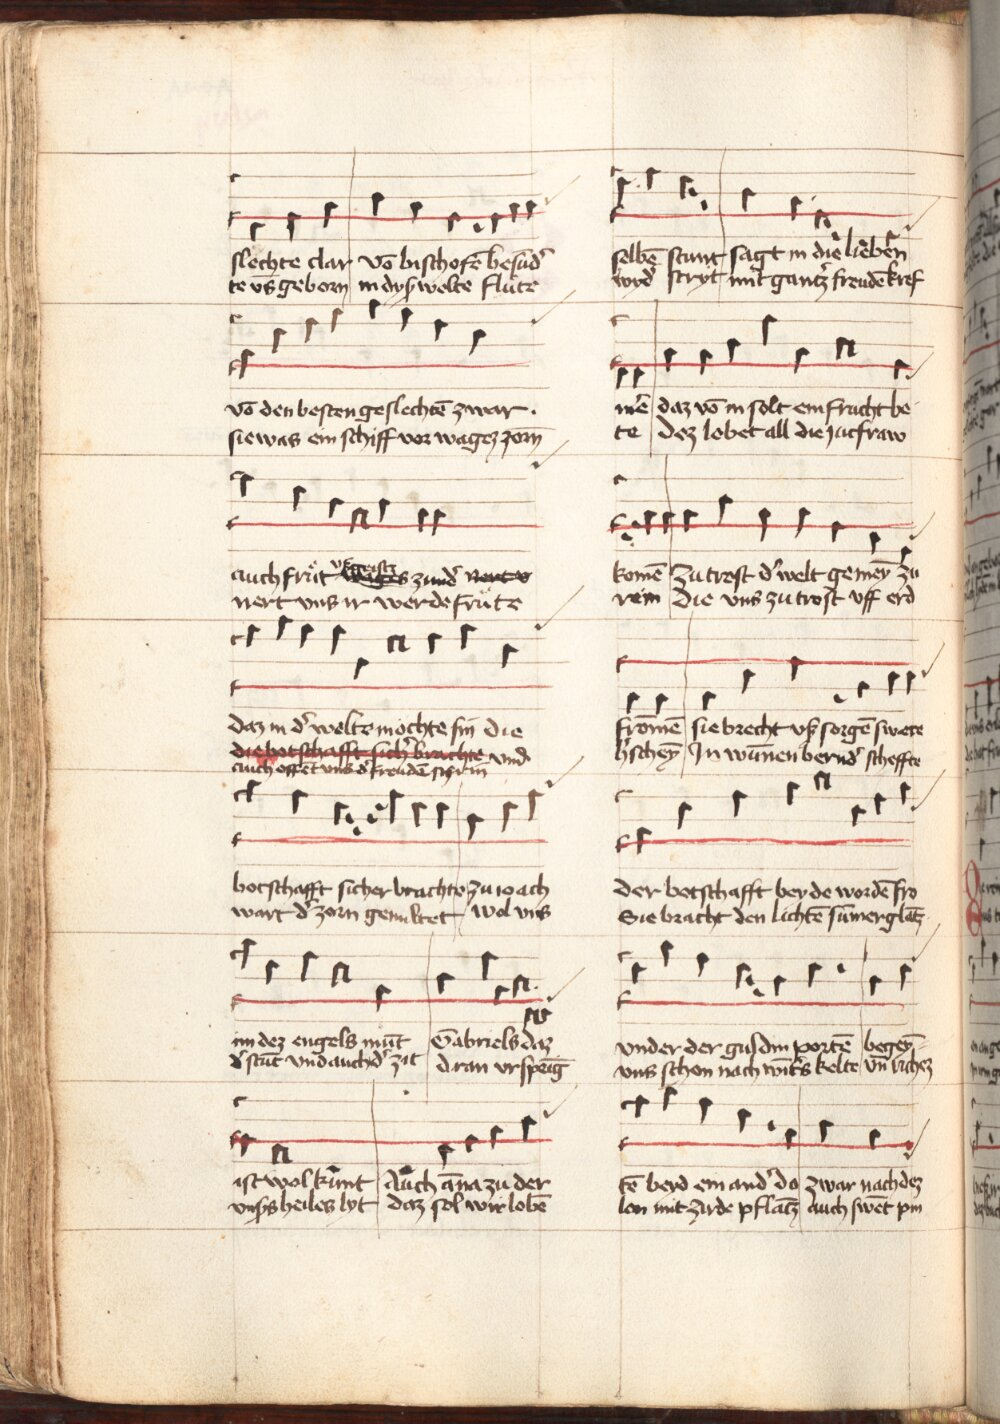 slechte clar vō bischofē besūd᷒
te vn̄s geborn in dyß welte flůte
vō den besten geslechtē zwar .
sie was ein schiff vor wagez zorn
auch frůt zund᷒
nert uns ir werde frůte
daz in d᷒ welte mochte sin die
die botschafft sich᷒ brachte und
auch offēt uns d᷒ freudē
botschafft sicher brachte zu ioach
wart d᷒ zorn gemiltet wol uns
im dez engels mūt Gabriels daz
d᷒ stūt und auch d᷒ zit dran ursprīg
ist wol kunt Auch āna zu der
unsers heiles lyt daz sol wir lobē
selbē stunt sagt in die liebērn
wyd᷒ stryt mit gantz᷒ freudē kref
mē daz vō in solt ein frucht be
te dez lobet all die jūcfraw
komē zu trost d᷒ welt gemey zu
rein die uns zu trost uff erd
fromē sie brecht uß sorgē swere
h᷒schey In wūnenbernd᷒ scheffte
der botschafft beyde wordē fro
Sie bracht den lichtē sūmerglātz
under der guldin portē begey
uns schon nach wīt᷒s kelte un̄ lichez
tē beyd ein and᷒ do zwar nach dez
lon mit zirde pflātz auch swēt pin